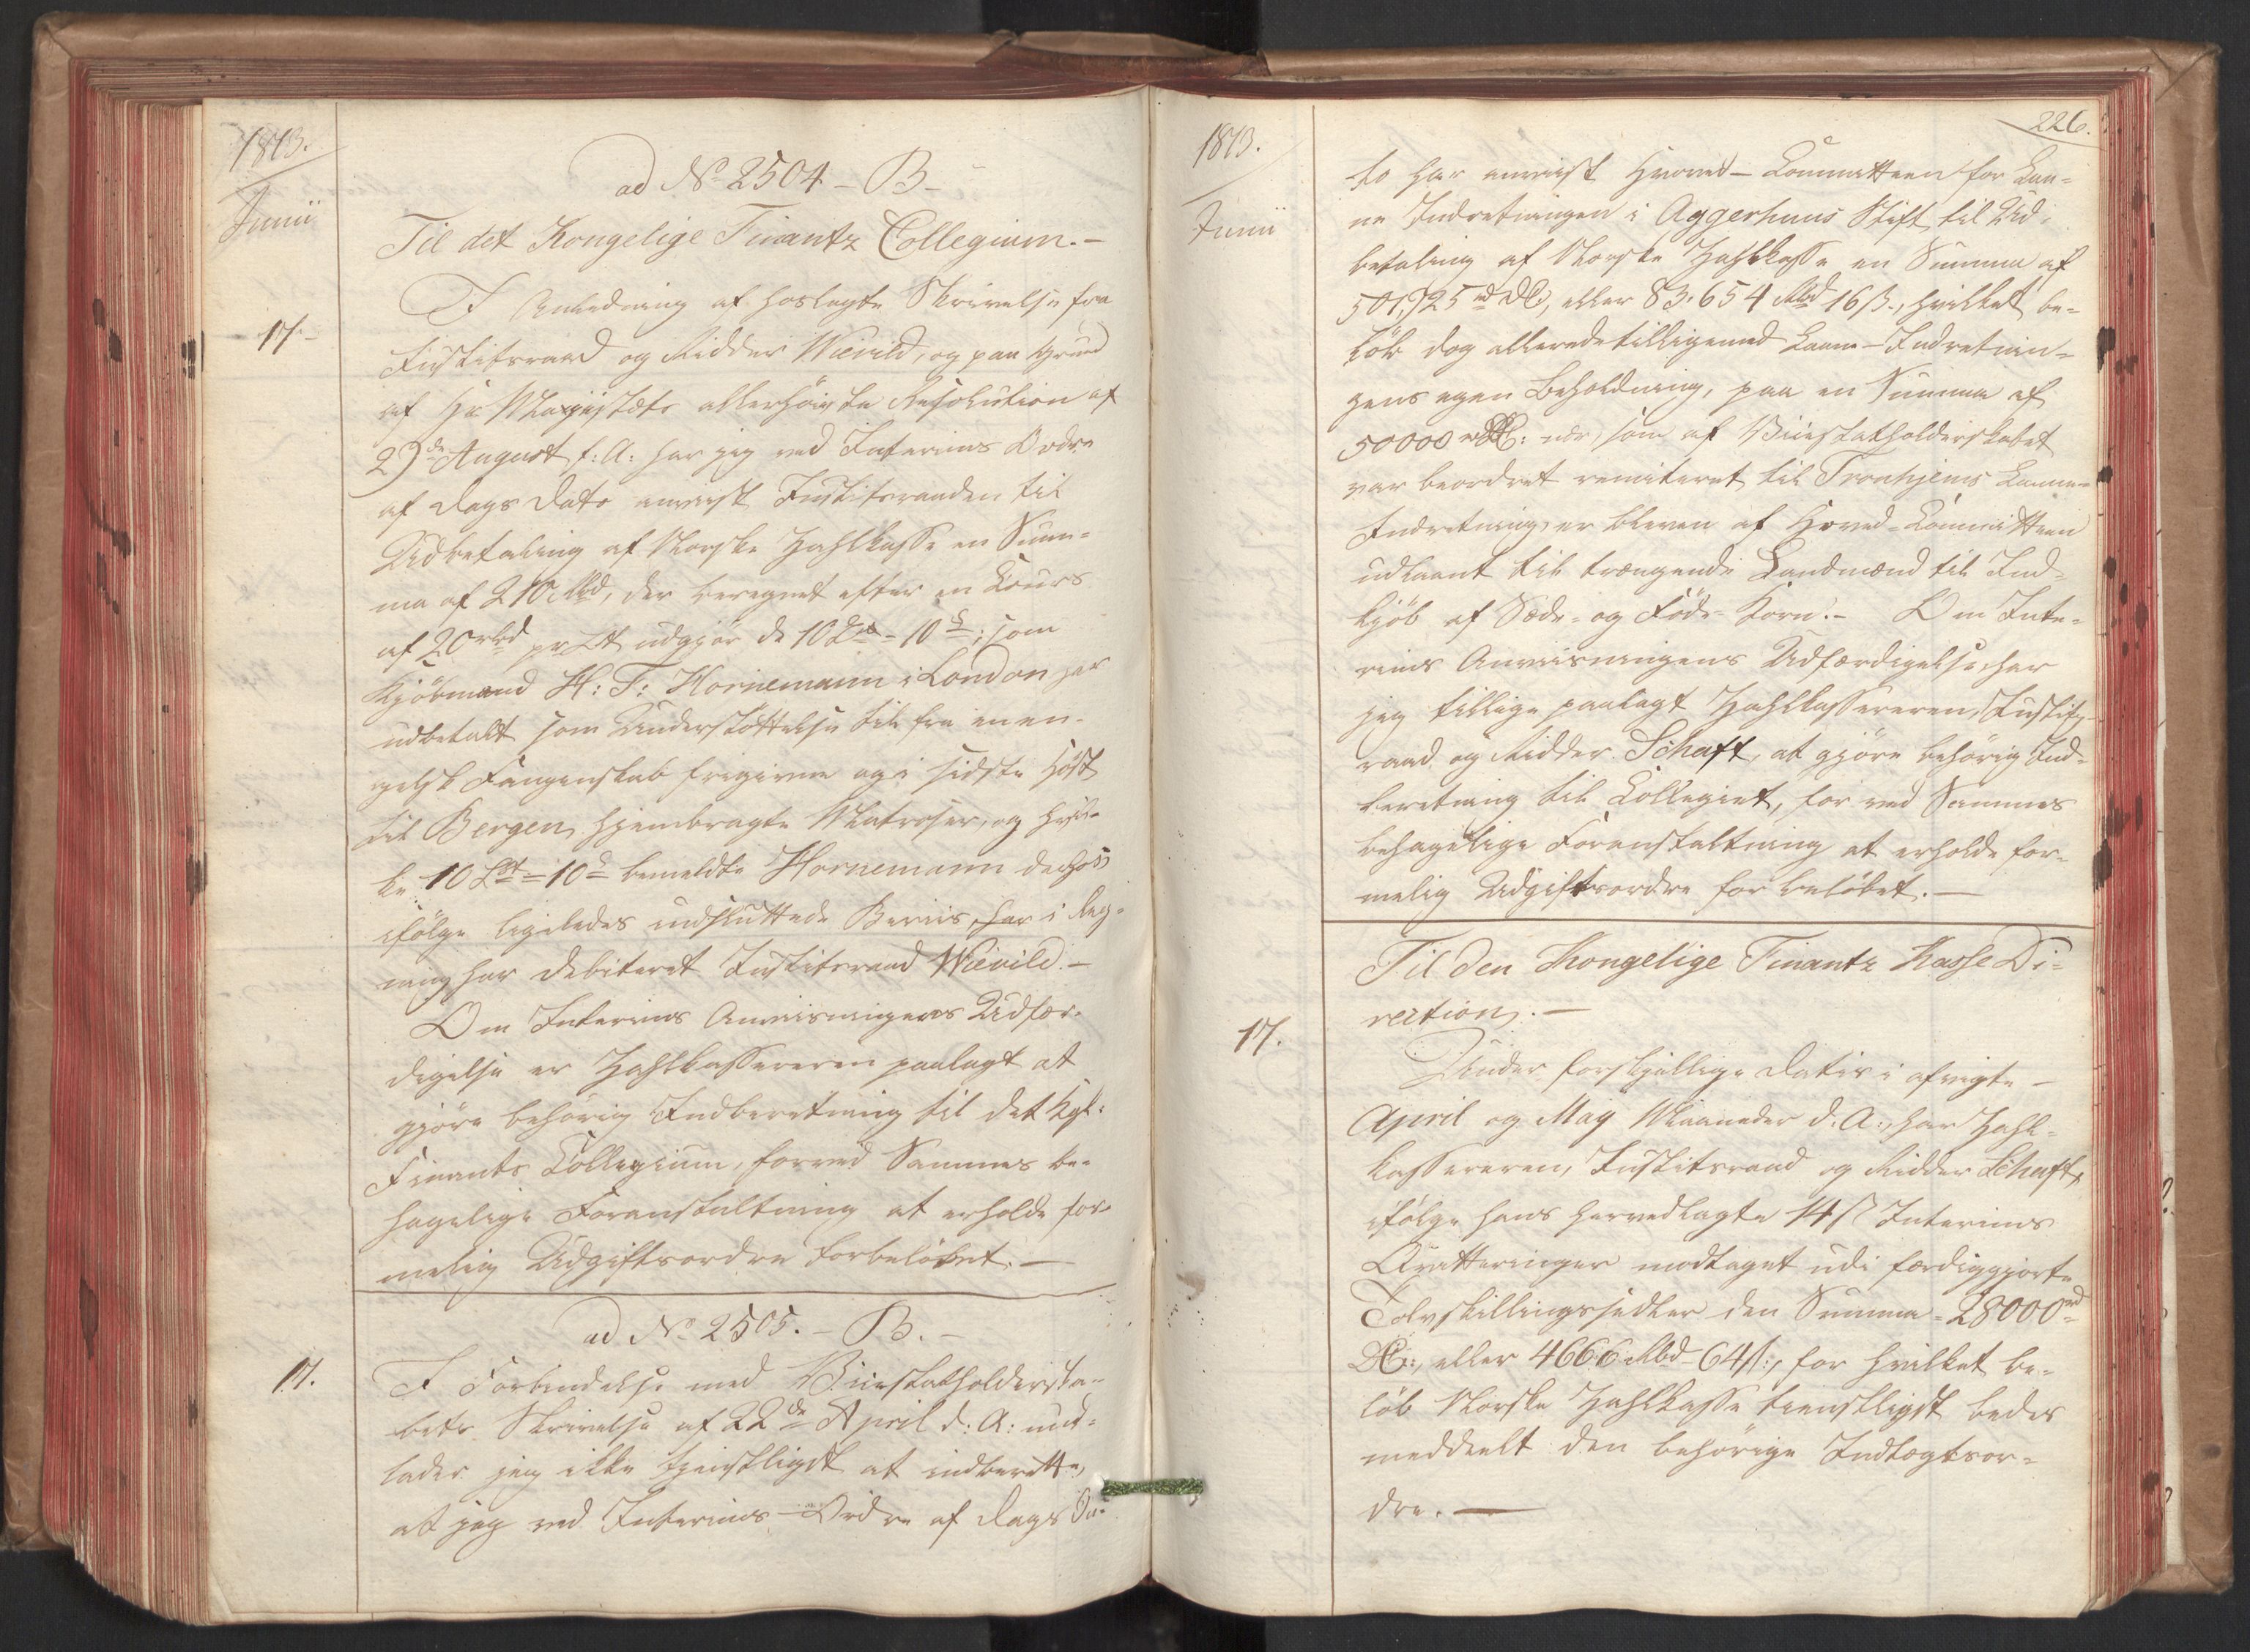 1813.
Junii
ad No 2504 - B -
Til det Kongelige Finantz Collegium. -
17.
I Anledning af hoslagte Skrivelse fra
Justitsraad og Ridder Wievild, og paa Grund
af Hs Majestæts allerhöieste Resolution af
27de August f: A: har jeg ved Interims Ordre
af Dags Dato anviist Justitsraaden til
Udbetaling af Norske Zahlkasse en Sum-
ma af 210 Rbd, der beregnet efter en Cours
af 20 rbd pr £ udgjör de 10 £ - 10 s; som
Kjöbmand H: F: Hornemann i London har
udbetalt som Understöttelse til fra en en-
gelsk Fangenskab frigivne og i sidste Höst
til Bergen hjembragte Matroser, og hvil-
ke 10 £ - 10 s bemeldte Hornemann
ifölge ligeledes indsluttede Beviis har i Reg-
ning har debiteret Justitsraad Wievild. -
Om Interims Anviisningens Udfær-
digelse er Zahlkassereren paalagt at
gjöre behörig Indberetning til det Kgl:
Finants Collegium, for ved Sammes be-
hagelige Foranstaltning at erholde for-
melig Udgiftsordre for belöbet. -
ad No 2505. - B. -
17.
I Forbindelse med Viicestatholderska-
bets Skrivelse af 22de April d: A: und-
lader jeg ikke tjenstligst at indberette,
at jeg ved Interims-Ordre af Dags Da-
226.
1813.
Junii
to har anviist Hoved-Committeen for Laa-
ne Indretningen i Aggerhuus Stift til Ud-
betaling af Norske Zahlkasse en Summa af
501,925 rd DC, eller 83,654 Rbd 16 ß., hvilket be-
löb dog allerede tilligemed Laane-Indretnin-
gens egen Beholdning, paa en Summa af
50000 rd DC: nær, som af Viicestatholderskabet
var beordret remiteret til Tronhjems Laane-
Indretning, er bleven af Hoved-Committeen
udlaant til trængende Landmænd til Ind-
kjöb af Sæde- og Föde-Korn. - Om Inte-
rims Anviisningens Udfærdigelse har
jeg tillige paalagt Zahlkassereren, Justits-
raad og Ridder Schaft, at gjöre behörig Ind-
beretning til Collegiet, for ved Sammes
behagelige Foranstaltning at erholde for-
melig Udgiftsordre for belöbet. -
Til den Kongelige Finantz Kasse Di-
rection. -
17.
Under forskjellige Datis i afvigte -
April og May Maaneder d. A:, har Zahl-
kassereren, Justitsraad og Ridder Schaft,
ifölge hans hervedlagte 14 Interims
Qvitteringer modtaget udi færdiggjorte
Tolvskillingssedler den Summa - 28000 rd
DC:, eller 4666 Rbd - 64 ß:, for hvilket be-
löb Norske Zahlkasse tienstligst bedes
meddeelt den behörige Indtægtsor-
dre. -